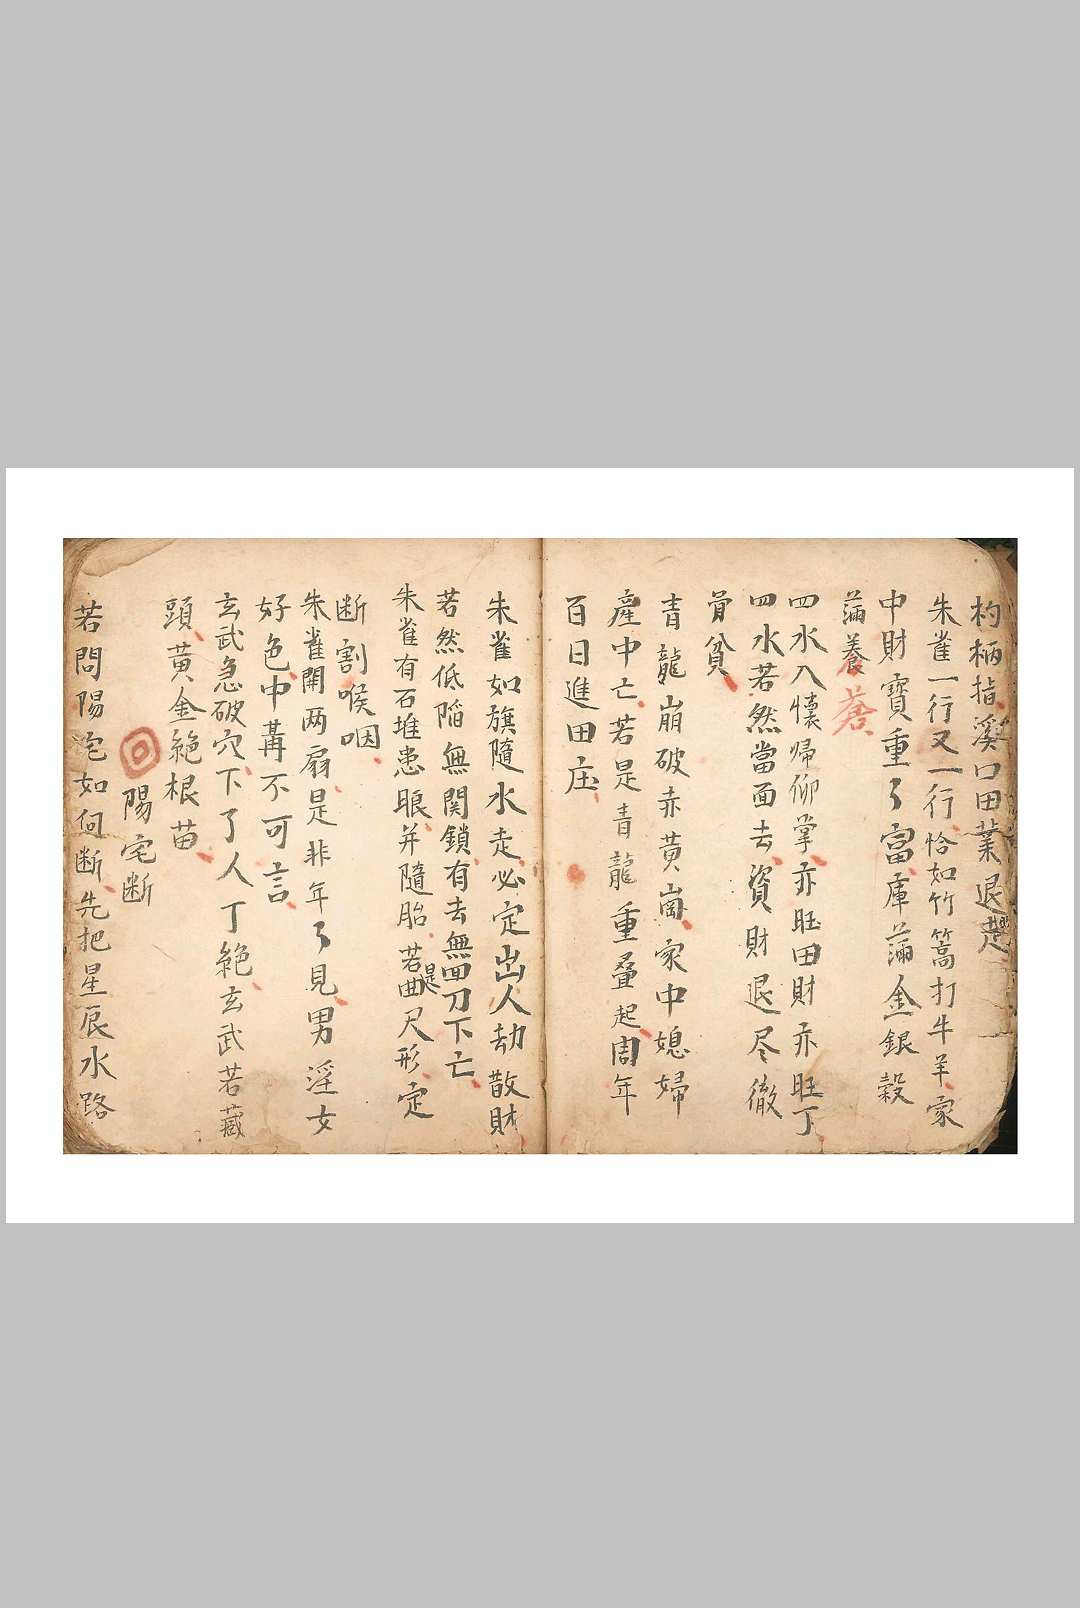 杓柄指溪口田業退走
朱雀一行又一行恰如竹篙打牛羊家
中財寶重々富庫滿金銀穀
滿養 蒼
四水入懷歸仰掌亦旺田財亦旺丁
四水若然當面去資財退尽徹
骨貧
青龍崩破赤黄崗家中媳婦
產中亡若是青龍重叠起周年
百日進田庄
朱雀如旗隨水走必定出人劫散財
若然低陷無関鎖有去無回刀下亡
朱雀有石堆患眼并隨胎若是曲尺形定
断割喉咽
朱雀開两扇是非年々見男淫女
好色中冓不可言
玄武急破穴下了人丁絕玄武若藏
頭黄金絕根苗
陽宅断
若問陽宅如何断先把星辰水路